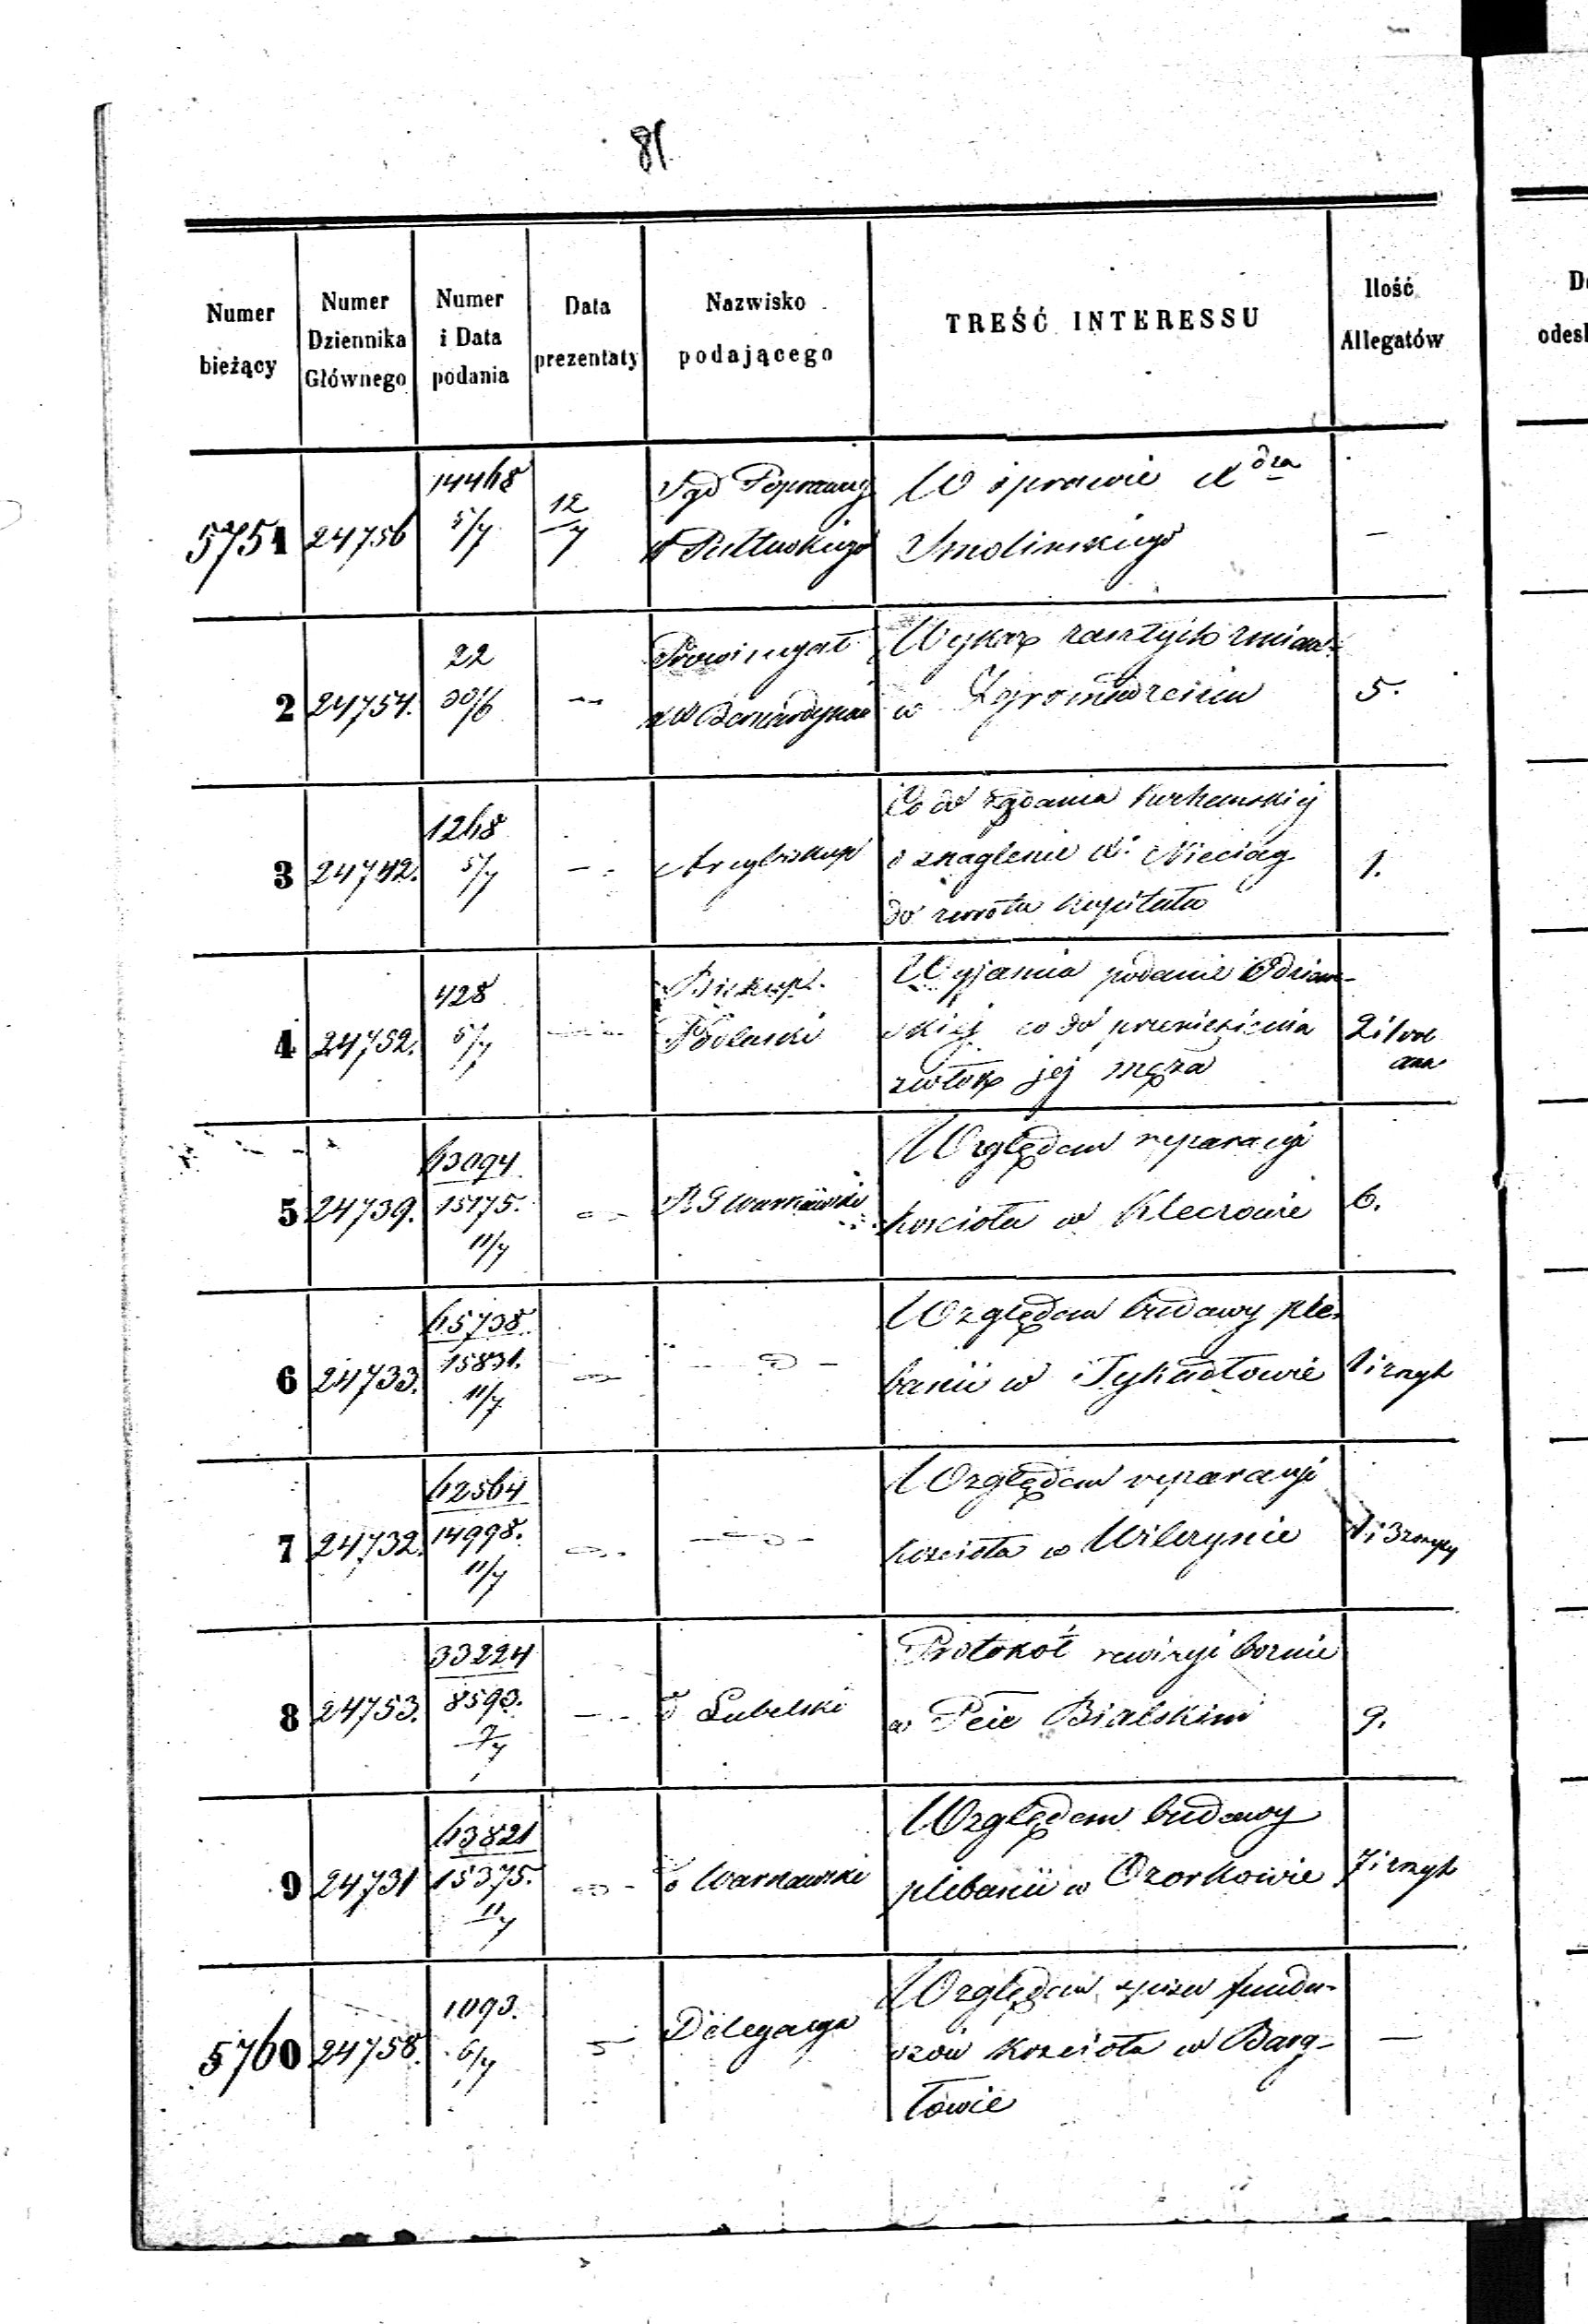 81.
Numer bieżący
Numer Dziennika Głównego
Numer i Data podania
Data prezentaty
Nazwisko podającego
TREŚĆ INTERESSU
Ilość Allegatów
5751 24756 14468 5/7 12/7 Sąd Poprawczy Pułtuskiego
W sprawie Xdza
Smolińskiego
—
2 24754. 22 30/6 Prowincyał XX Bernardynów
Wykaz zaszłych zmian
w Zgromadzeniu
5.
3 24742. 1268 5/7 Arcybiskup
Co do żądania
o znaglenie X. Nieciąg
do zwrotu kapitału
1.
4 24752. 428 5/7 Biskup Podlaski
Wyjaśnia podanie
skiej co do przeniesienia
zwłok jej męża
2 i
5 24739. 63094 15175. 11/7 R G Warszawski
Względem reparacyi
kościoła w Kleczowie
6.
6 24733. 65738. 15831. 11/7
Względem budowy ple-
banii w Tykadłowie
1 i
7 24732. 62564 14998. 11/7
Względem reparacyi
kościoła w Wilczynie
1 i 3
8 24753. 33224 8593. 7/7 Lubelski
Protokół rewizyi
w Pcie Bialskim
9.
9 24731 63821 15375. 11/7 Warszawski
Względem budowy
plebanii w Ozorkowie
7 i
5760 24758. 1093. 6/7 Delegacya
Względem spisu fundu-
szów kościoła w Barg-
łowie
—
D
odesł